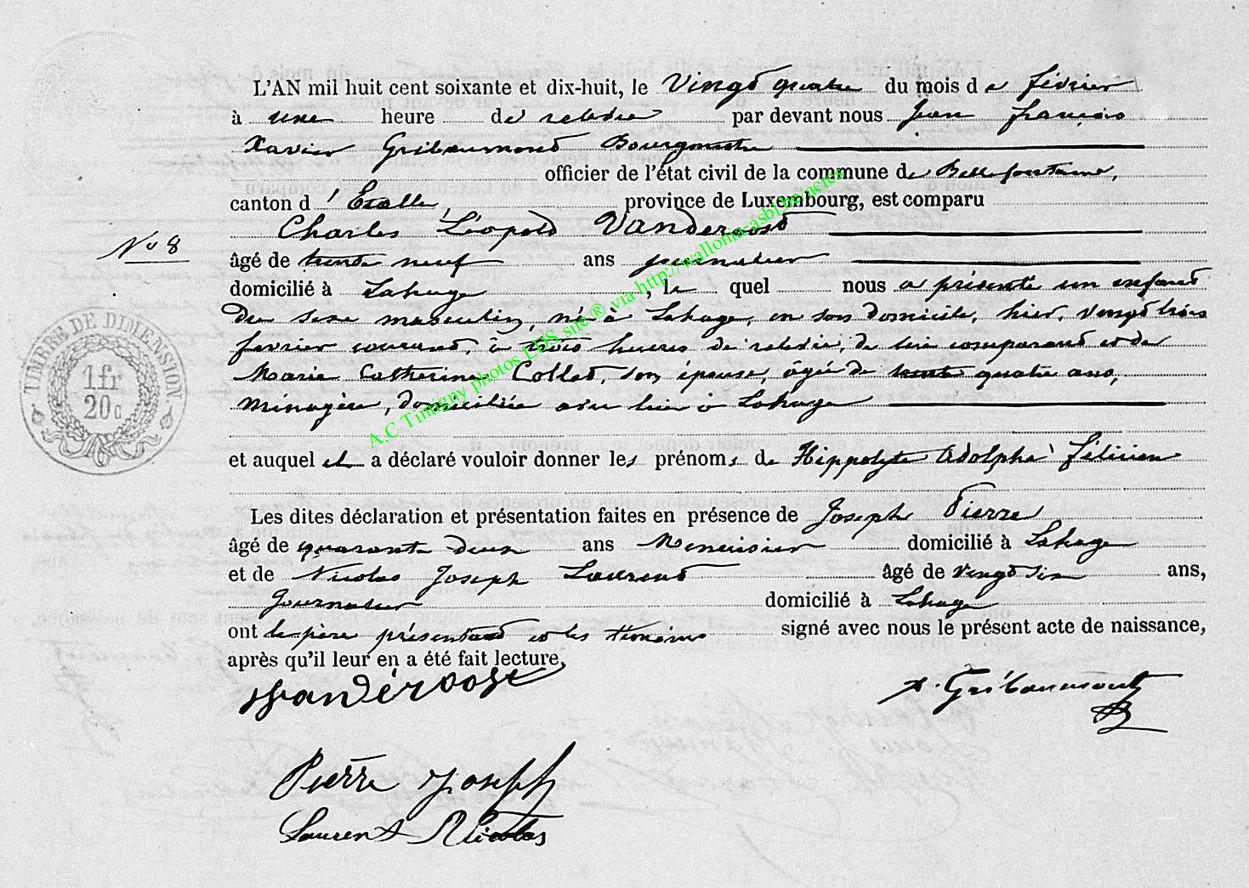 L'AN mil huit cent soixante et dix-huit, le Vingt quatre du mois de février
à une heure de relevée par devant nous Jean françois
Xavier Gribaumont Bourgmestre
officier de l'état civil de la commune de Bellefontaine,
canton d'Etalle, province de Luxembourg, est comparu
Charles Léopold Vanderoost
No 8
âgé de trente neuf ans journalier
domicilié à Lahage, le quel nous a présenté un enfant
du sexe masculin, né à Lahage, en son domicile, hier, vingt trois
fevrier courant, à trois heures de relevée, de lui comparant et de
Marie Catherine Collet, son épouse, âgée de trente quatre ans,
Ménagère, domiciliée avec lui à Lahage
TIMBRE DE DIMENSION
1 fr
20 c
et auquel il a déclaré vouloir donner les prénoms de Hippolyte Adolphe félicien
Les dites déclaration et présentation faites en présence de Joseph Pierre
âgé de quarante deux ans Menuisier domicilié à Lahage
et de Nicolas Joseph Laurent âgé de vingt six ans,
Journalier domicilié à Lahage
ont le père présentant et les témoins signé avec nous le présent acte de naissance,
après qu'il leur en a été fait lecture,
Vanderoost
X. Gribaumont
Pierre Joseph
Laurent Nicolas
A.C Tintigny photos LDS site ® via http://wallonia-asbl.be/actes